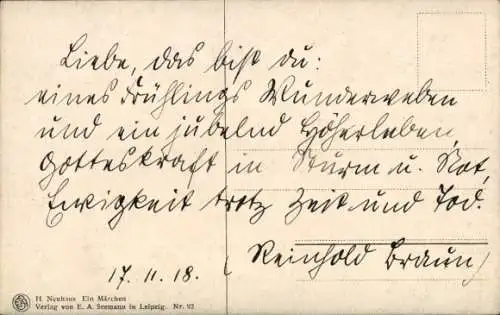 Liebe, das bist du:
eines Frühlings Wunderweben
und ein jubelnd Höherleben,
Gotteskraft in Sturm u. Not,
Ewigkeit trotz Zeit und Tod.
(Reinhold Braun)
17. 11. 18.
H. Neuhaus Ein Märchen
Verlag von E. A. Seemann in Leipzig. Nr. 92